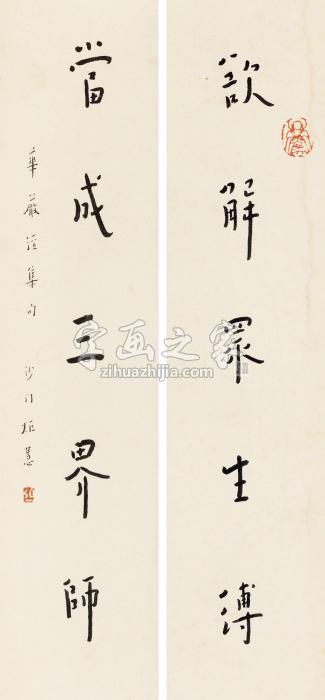 欲解眾生縛
當成三界師
華嚴經集句 沙門慧
字画之家
zihuazhijia.com